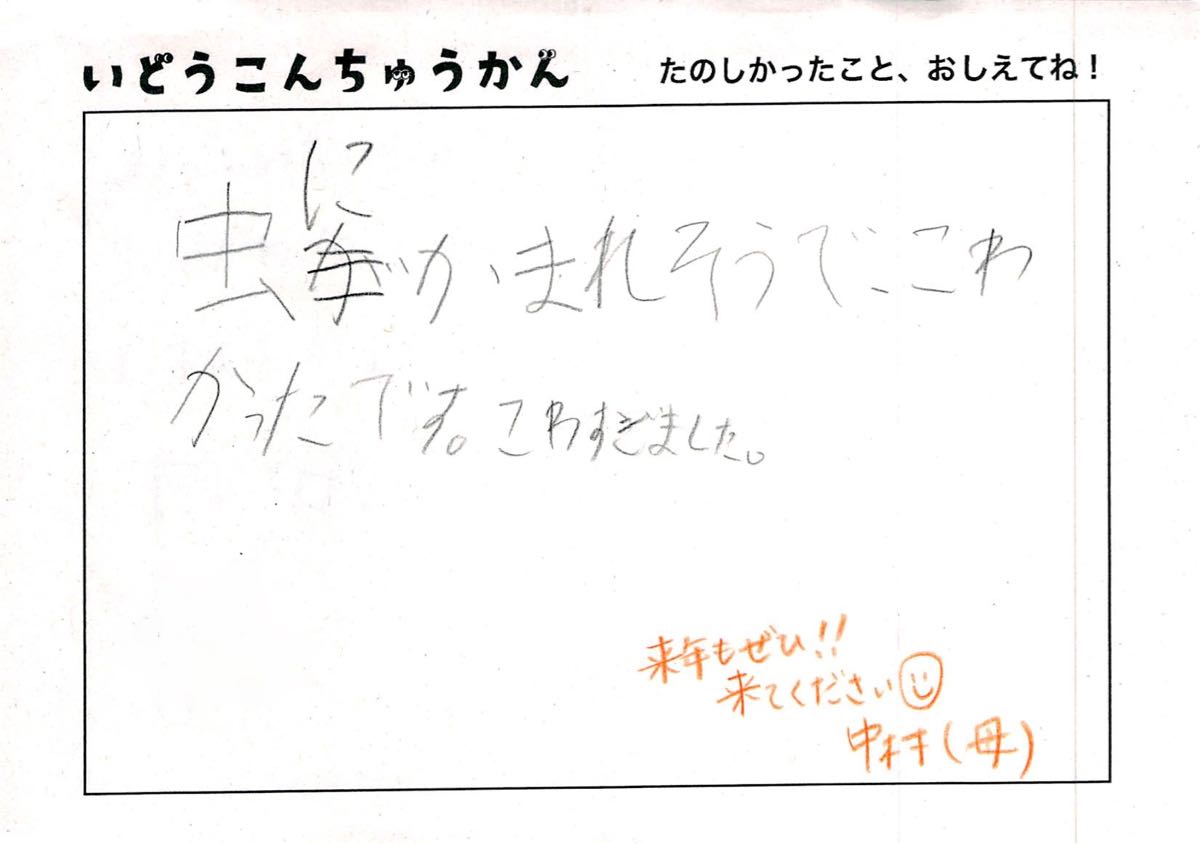 いどうこんちゅうかん たのしかったこと、おしえてね！
虫にかまれそうで、こわ
かったです。こわすぎました。
来年もぜひ!!
来てください
中村(母)